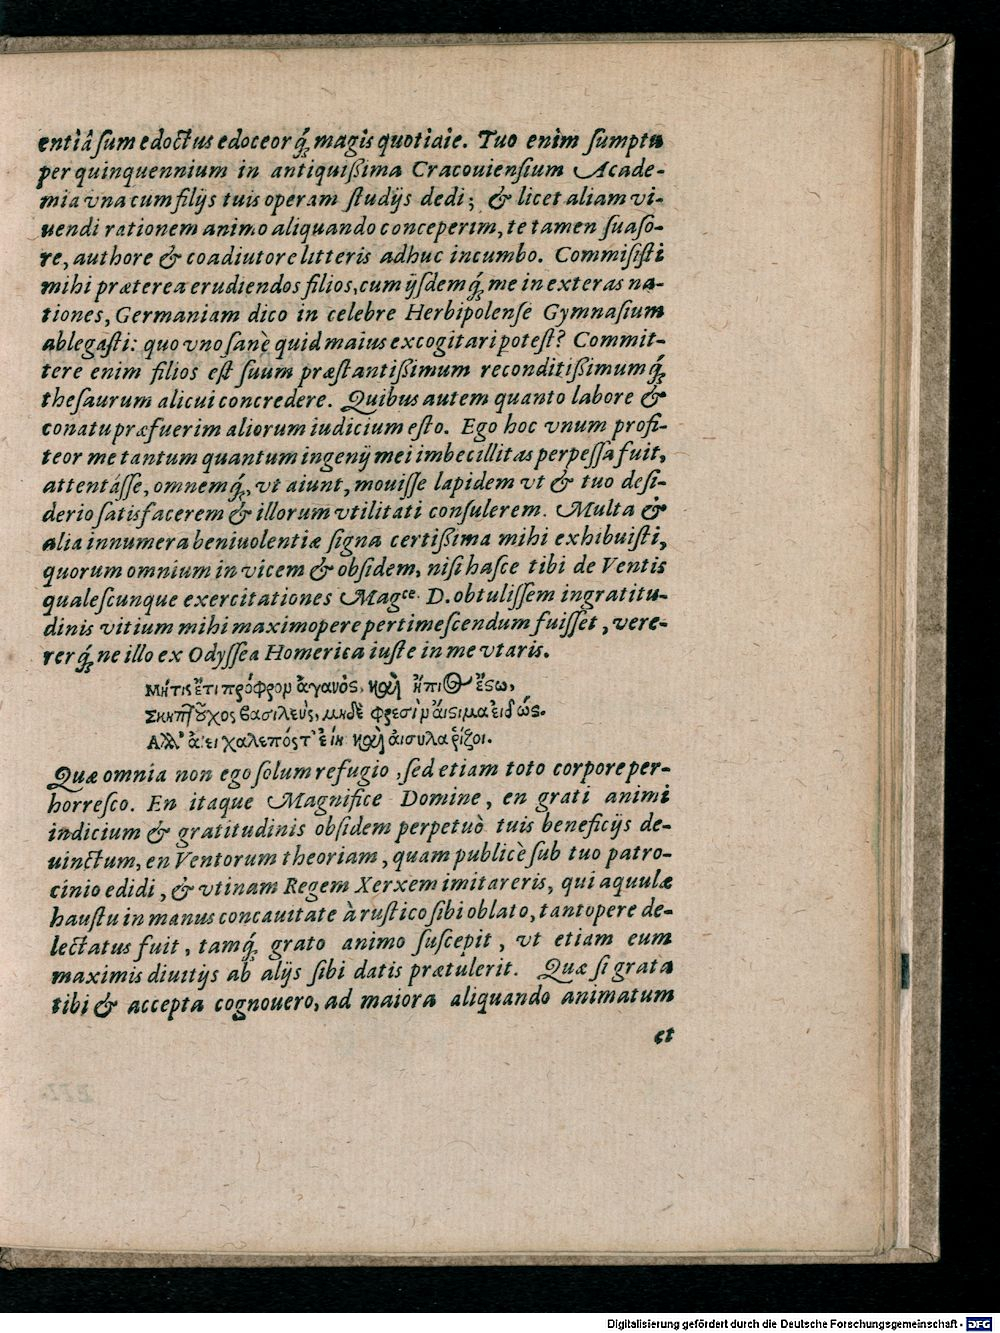 entiâ sum edoctus edoceorq́; magis quotidie. Tuo enim sumptu
per quinquennium in antiquißima Cracouiensium Acade-
mia vna cum filijs tuis operam studijs dedi; & licet aliam vi-
uendi rationem animo aliquando conceperim, te tamen suaso-
re, authore & coadiutore litteris adhuc incumbo. Commisisti
mihi præterea erudiendos filios, cum ijsdemq́; me in exteras na-
tiones, Germaniam dico in celebre Herbipolense Gymnasium
ablegasti: quo vno sanè quid maius excogitari potest? Commit-
tere enim filios est suum præstantißimum reconditißimumq́;
thesaurum alicui concredere. Quibus autem quanto labore &
conatu præfuerim aliorum iudicium esto. Ego hoc vnum profi-
teor me tantum quantum ingenij mei imbecillitas perpessa fuit,
attentásse, omnemq́;, vt aiunt, mouisse lapidem vt & tuo desi-
derio satisfacerem & illorum vtilitati consulerem. Multa &
alia innumera beniuolentiæ signa certißima mihi exhibuisti,
quorum omnium in vicem & obsidem, nisi hasce tibi de Ventis
qualescunque exercitationes Magce. D. obtulissem ingratitu-
dinis vitium mihi maximopere pertimescendum fuisset, vere-
rerq́; ne illo ex Odyssea Homerica iuste in me vtaris.
Μήτις ἔτι πρόφρομ ἀγανὸς, καὶ ἤπιος ἔςω,
Σκηπτοῦχος βασιλεὺς, μηδὲ φρεσὶμ ἄισιμα ειδώς.
Αλλ' ἀει χαλεπός τ' εἴη καὶ ἀισυλα ῥέζοι.
Quæ omnia non ego solum refugio, sed etiam toto corpore per-
horresco. En itaque Magnifice Domine, en grati animi
indicium & gratitudinis obsidem perpetuò tuis beneficijs de-
uinctum, en Ventorum theoriam, quam publicè sub tuo patro-
cinio edidi, & vtinam Regem Xerxem imitareris, qui aquulæ
haustu in manus concauitate à rustico sibi oblato, tantopere de-
lectatus fuit, tamq́; grato animo suscepit, vt etiam eum
maximis diuitijs ab alijs sibi datis prætulerit. Quæ si grata
tibi & accepta cognouero, ad maiora aliquando animatum
et
Digitalisierung gefördert durch die Deutsche Forschungsgemeinschaft - DFG